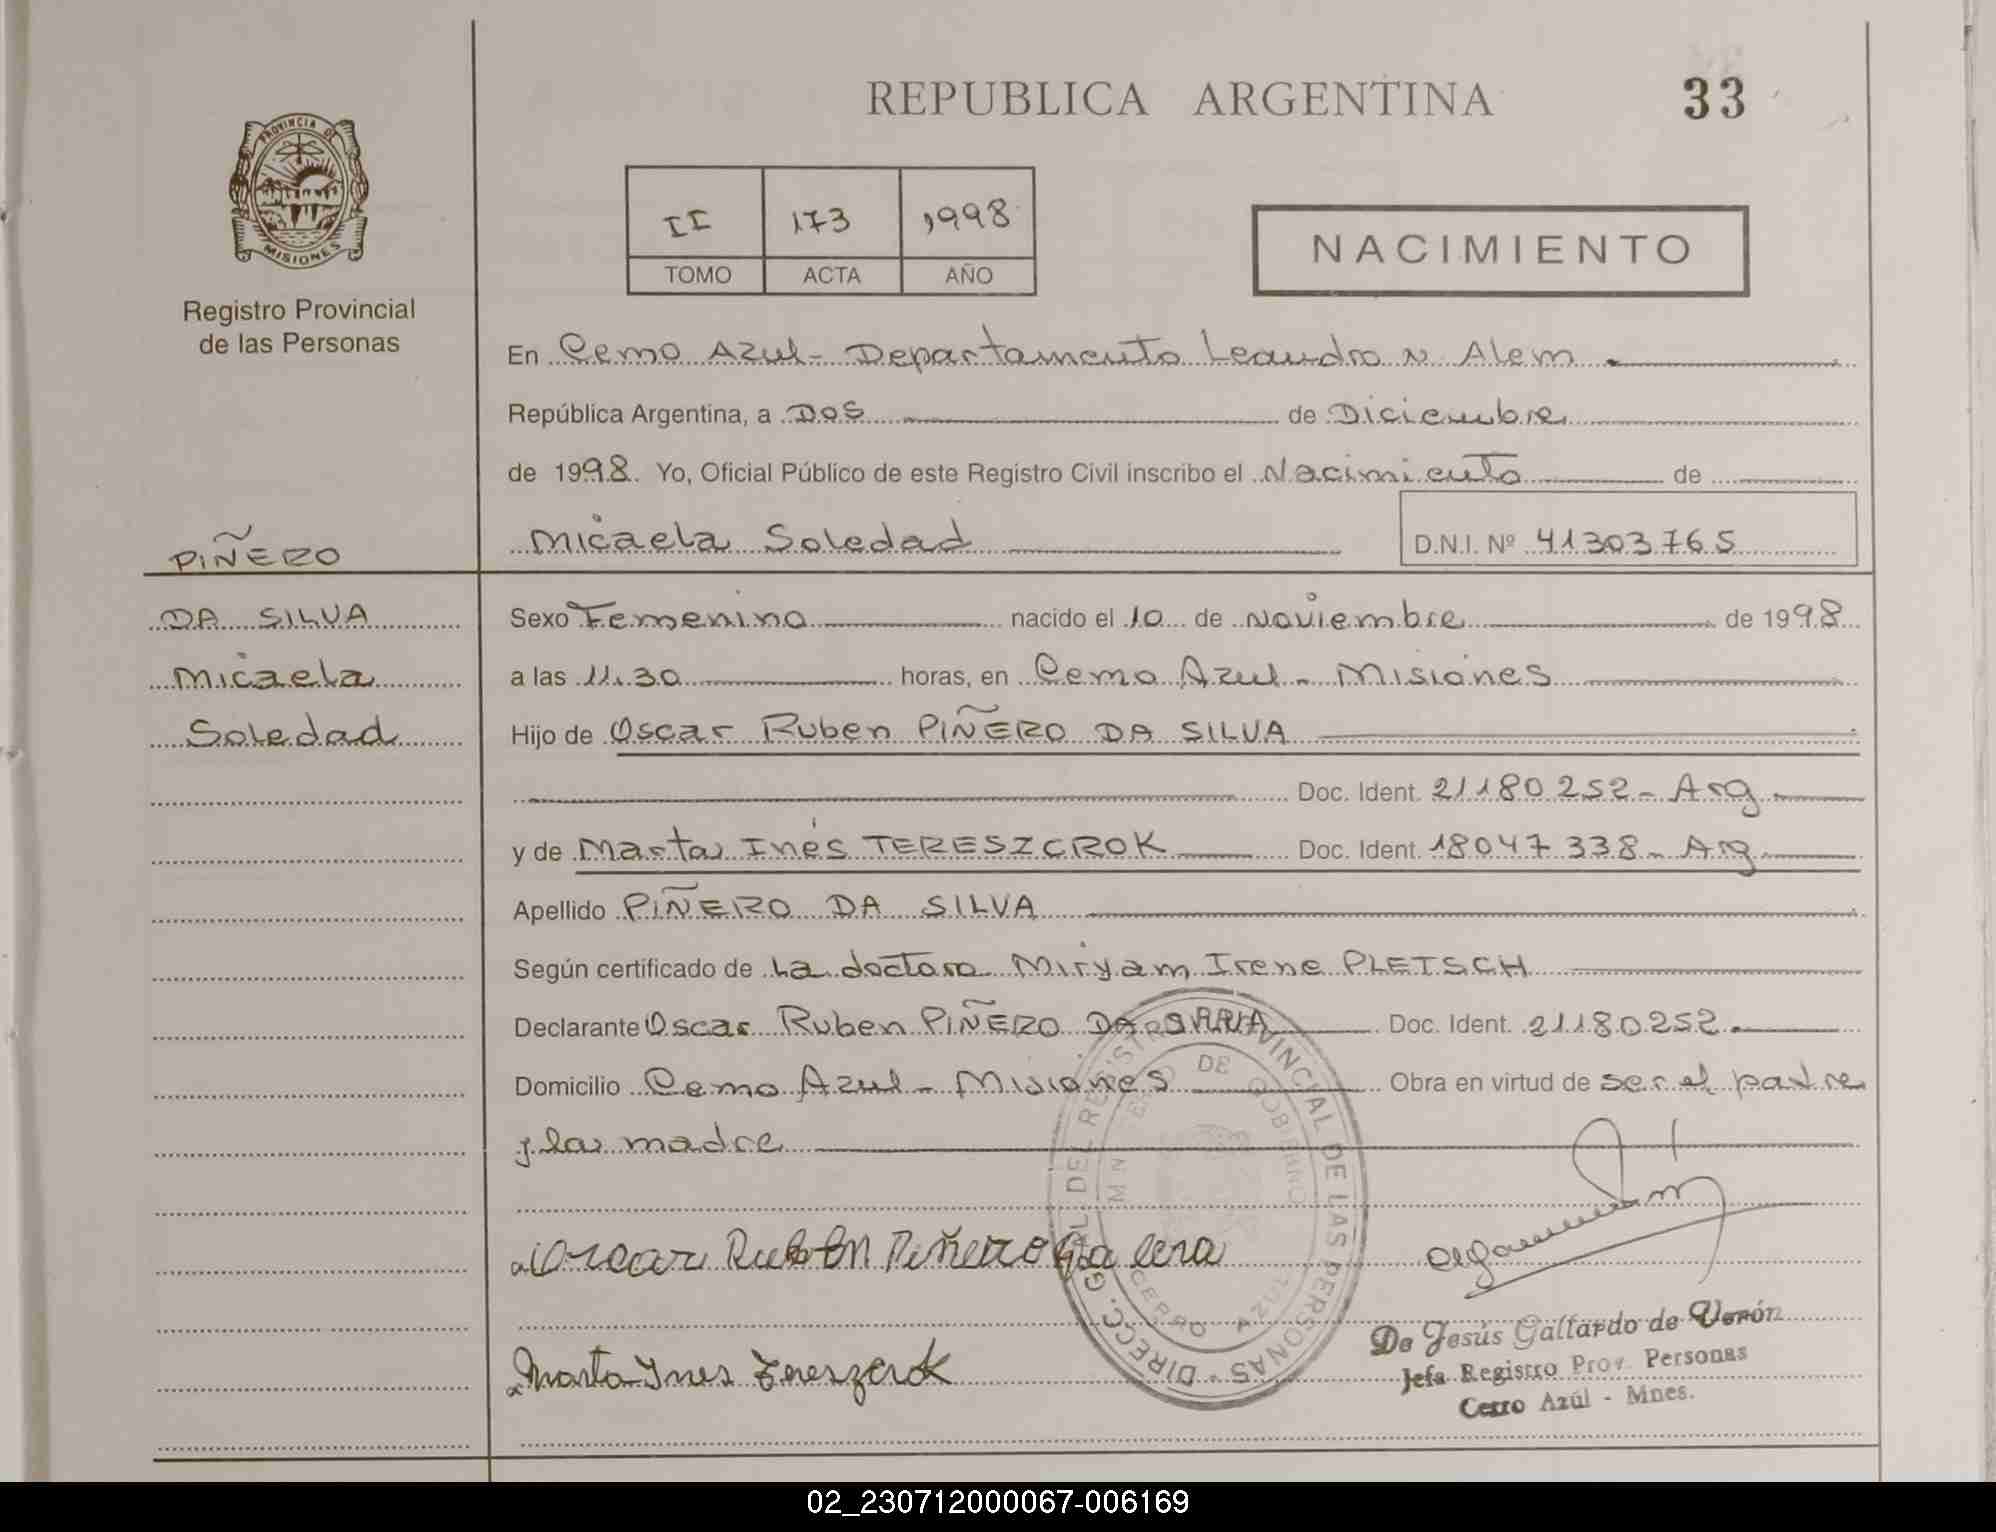 REPUBLICA ARGENTINA
33
PROVINCIA DE
MISIONES
Registro Provincial
de las Personas
II 173 1998
TOMO ACTA AÑO
NACIMIENTO
En Cerro Azul - Departamento Leandro N Alem
República Argentina, a Dos de Diciembre
de 1998. Yo, Oficial Público de este Registro Civil inscribo el Nacimiento de
Micaela Soledad D.N.I. Nº 41303765
PIÑERO
DA SILVA
Micaela
Soledad
Sexo Femenino nacido el 10 de Noviembre de 1998
a las 11.30 horas, en Cerro Azul - Misiones
Hijo de Oscar Ruben PIÑERO DA SILVA
Doc. Ident. 21180252 - Arg.
y de Marta Inés TERESZCROK Doc. Ident. 18047338 - Arg.
Apellido PIÑERO DA SILVA
Según certificado de La doctora Miryam Irene PLETSCH
Declarante Oscar Ruben PIÑERO DA SILVA Doc. Ident. 21180252.
Domicilio Cerro Azul - Misiones Obra en virtud de ser el padre
y la madre
DIRECC. GRAL. DEL REGISTRO PROVINCIAL DE LAS PERSONAS
MINISTERIO DE GOBIERNO
CERRO AZUL
Marta Ines Tereszcrok
De Jesús Gallardo de Verón
Jefa Registro Prov. Personas
Cerro Azúl - Mnes.
02_230712000067-006169